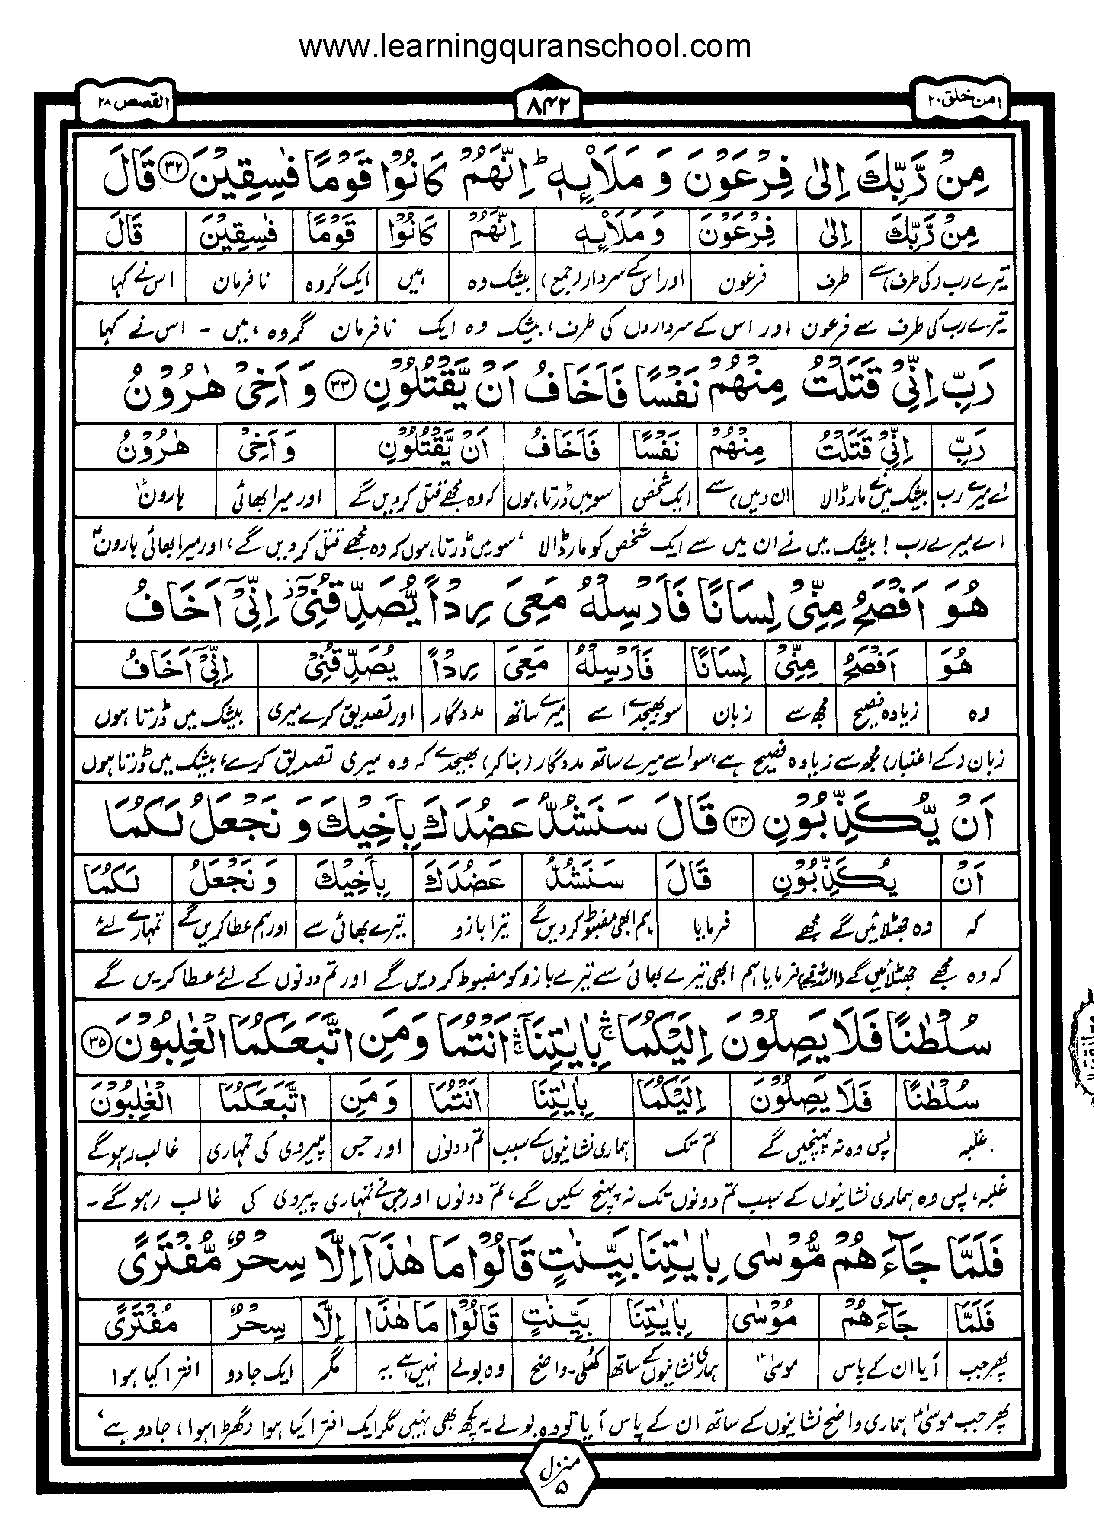 www.learningquranschool.com
امن خلق ۲۰
۸۴۲
القصص ۲۸
مِنْ رَّبِّكَ اِلٰى فِرْعَوْنَ وَ مَلَا۟ىِٕهٖ ؕ اِنَّهُمْ كَانُوْا قَوْمًا فٰسِقِیْنَ ﴿۳۲﴾ قَالَ
مِنْ رَّبِّكَ اِلٰى فِرْعَوْنَ وَ مَلَا۟ىِٕهٖ اِنَّهُمْ كَانُوْا قَوْمًا فٰسِقِیْنَ قَالَ
تیرے رب (کی طرف) سے طرف فرعون اور اس کے سردار (جمع) بیشک وہ ہیں ایک گروہ نافرمان اس نے کہا
تیرے رب کی طرف سے فرعون اور اس کے سرداروں کی طرف، بیشک وہ ایک نافرمان گروہ ہیں - اس نے کہا
رَبِّ اِنِّیْ قَتَلْتُ مِنْهُمْ نَفْسًا فَاَخَافُ اَنْ یَّقْتُلُوْنِ ﴿۳۳﴾ وَ اَخِیْ هٰرُوْنُ
رَبِّ اِنِّیْ قَتَلْتُ مِنْهُمْ نَفْسًا فَاَخَافُ اَنْ یَّقْتُلُوْنِ وَ اَخِیْ هٰرُوْنُ
اے میرے رب بیشک میں نے مار ڈالا ان (میں) سے ایک شخص سو میں ڈرتا ہوں کہ وہ مجھے قتل کردیں گے اور میرا بھائی ہارونؑ
اے میرے رب ! بیشک میں نے ان میں سے ایک شخص کو مار ڈالا ، سو میں ڈرتا ہوں کہ وہ مجھے قتل کردیں گے، اور میرا بھائی ہارونؑ
هُوَ اَفْصَحُ مِنِّیْ لِسَانًا فَاَرْسِلْهُ مَعِیَ رِدْاً یُّصَدِّقُنِیْۤ ؗ اِنِّیْۤ اَخَافُ
هُوَ اَفْصَحُ مِنِّیْ لِسَانًا فَاَرْسِلْهُ مَعِیَ رِدْاً یُصَدِّقُنِیْ اِنِّیْۤ اَخَافُ
وہ زیادہ فصیح مجھ سے زبان سو بھیجدے اسے میرے ساتھ مددگار اور تصدیق کرے میری بیشک میں ڈرتا ہوں
زبان (کے اعتبار) مجھ سے زیادہ فصیح ہے، سو اسے میرے ساتھ مددگار (بنا کر) بھیجدے کہ وہ میری تصدیق کرے، بیشک میں ڈرتا ہوں
اَنْ یُّكَذِّبُوْنِ ﴿۳۴﴾ قَالَ سَنَشُدُّ عَضُدَكَ بِاَخِیْكَ وَ نَجْعَلُ لَكُمَا
اَنْ یُكَذِّبُوْنِ قَالَ سَنَشُدُّ عَضُدَكَ بِاَخِیْكَ وَ نَجْعَلُ لَكُمَا
کہ وہ جھٹلائیں گے مجھے فرمایا ہم ابھی مضبوط کردیں گے تیرا بازو تیرے بھائی سے اور ہم عطا کریں گے تمہارے لئے
کہ وہ مجھے جھٹلائیں گے فرمایا ہم ابھی تیرے بھائی سے تیرے بازو کو مضبوط کر دیں گے اور تم دونوں کے لئے عطا کریں گے
سُلْطٰنًا فَلَا یَصِلُوْنَ اِلَیْكُمَا ۛۚ بِاٰیٰتِنَاۤ ۛۚ اَنْتُمَا وَ مَنِ اتَّبَعَكُمَا الْغٰلِبُوْنَ ﴿۳۵﴾
سُلْطٰنًا فَلَا یَصِلُوْنَ اِلَیْكُمَا بِاٰیٰتِنَا اَنْتُمَا وَ مَنِ اتَّبَعَكُمَا الْغٰلِبُوْنَ
غلبہ پس وہ نہ پہنچیں گے تم تک ہماری نشانیوں کے سبب تم دونوں اور جس پیروی کی تمہاری غالب رہو گے
غلبہ، پس وہ ہماری نشانیوں کے سبب تم دونوں تک نہ پہنچ سکیں گے، تم دونوں اور جس نے تمہاری پیروی کی غالب رہو گے -
فَلَمَّا جَآءَهُمْ مُّوْسٰى بِاٰیٰتِنَا بَیِّنٰتٍ قَالُوْا مَا هٰذَاۤ اِلَّا سِحْرٌ مُّفْتَرًى
فَلَمَّا جَآءَهُمْ مُوْسٰى بِاٰیٰتِنَا بَیِّنٰتٍ قَالُوْا مَا هٰذَا اِلَّا سِحْرٌ مُفْتَرًى
پھر جب آیا ان کے پاس موسیٰؑ ہماری نشانیوں کے ساتھ کھلی - واضح وہ بولے نہیں ہے یہ مگر ایک جادو افترا کیا ہوا
پھر جب موسیٰؑ ہماری واضح نشانیوں کے ساتھ ان کے پاس آیا تو وہ بولے یہ کچھ بھی نہیں مگر ایک افترا کیا ہوا (گھڑا ہوا) جادو ہے،
منزل ۵